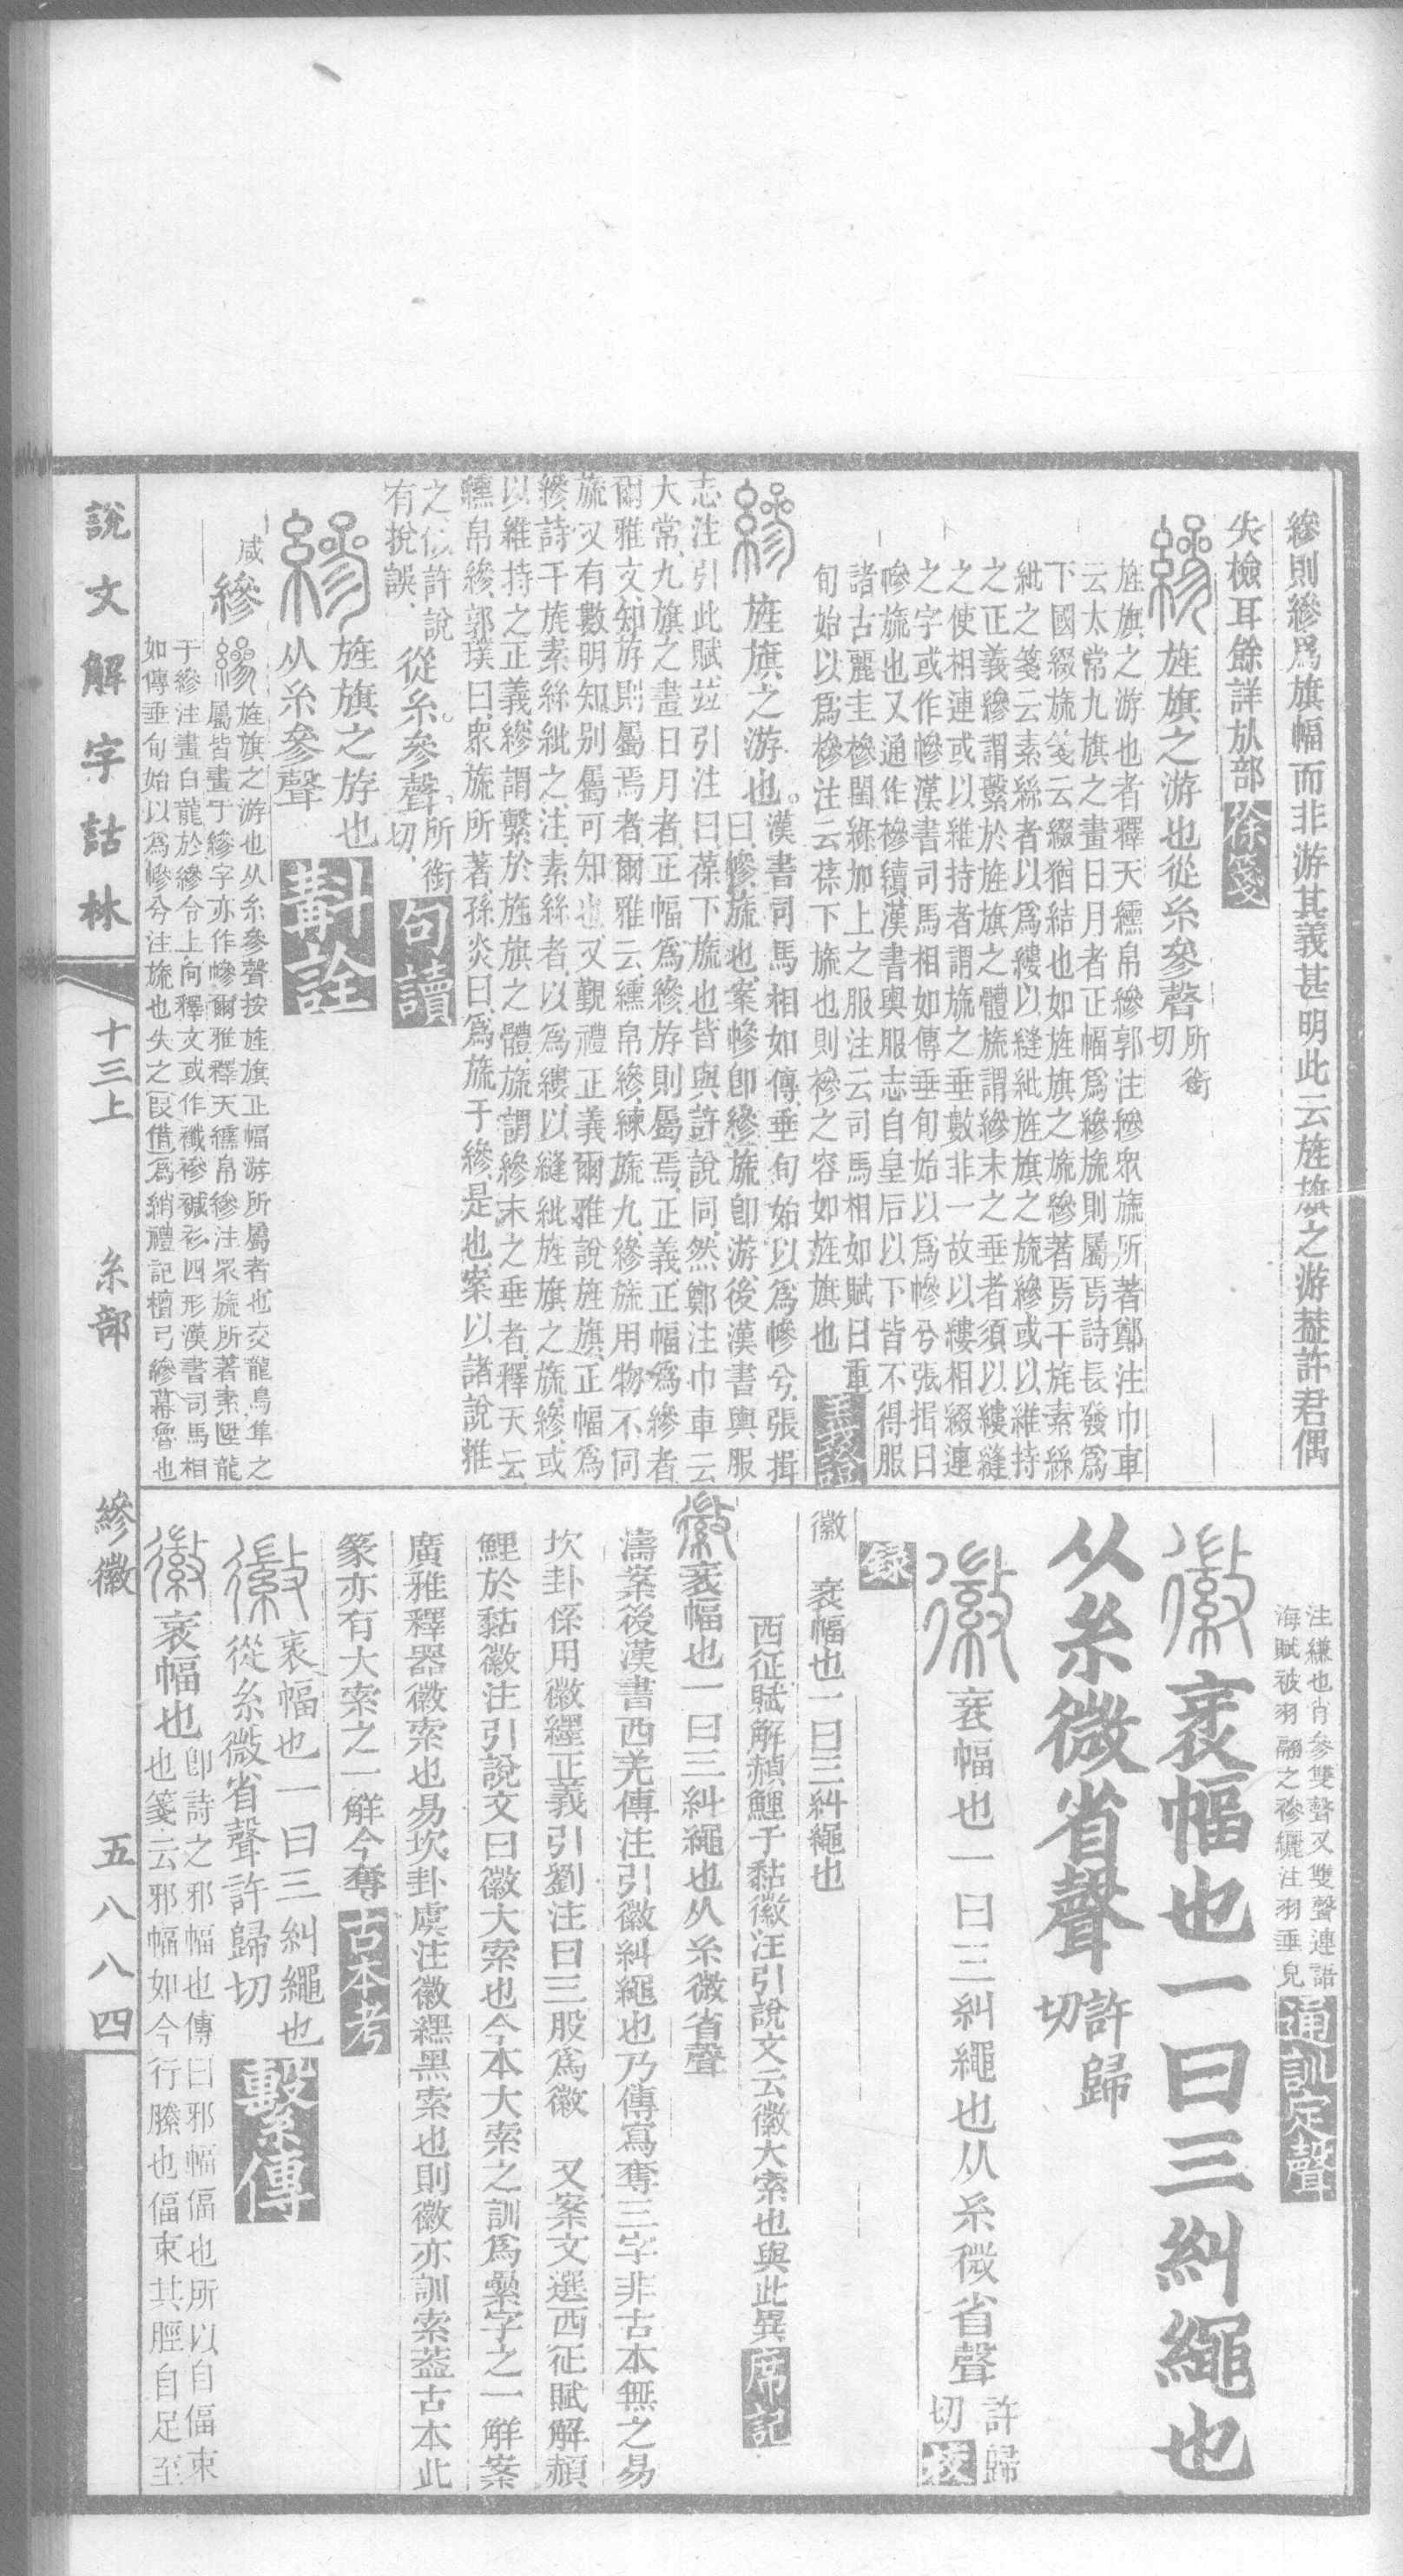 縿則縿爲旗幅而非游其義甚明此云旌旗之游葢許君偶
失檢耳餘詳㫃部徐箋
縿旌旗之游也從糸參聲所銜切
旌旗之游也者釋天纁帛縿郭注縿眾旒所著鄭注巾車
云太常九旗之畫日月者正幅爲縿旒則屬焉詩長發爲
下國綴旒箋云綴猶結也如旌旗之旒縿著焉干旄素絲
紕之箋云素絲者以爲縷以縫紕旌旗之旒縿或以維持
之正義縿謂繫於旌旗之體旒謂縿末之垂者須以縷縫
之使相連或以維持者謂旒之垂數非一故以縷相綴連
之字或作幓漢書司馬相如傳垂旬始以爲幓兮張揖曰
幓旒也又通作襂續漢書輿服志自皇后以下皆不得服
諸古麗圭襂閨緣加上之服注云司馬相如賦曰垂
旬始以爲襂注云葆下旒也則襂之容如旌旗也義證
縿旌旗之游也漢書司馬相如傳垂旬始以爲幓兮張揖
曰幓旒也案幓卽縿旒卽游後漢書輿服
志注引此賦並引注曰葆下旒也皆與許說同然鄭注巾車云
大常九旗之畫日月者正幅爲縿斿則屬焉正義正幅爲縿者
爾雅文知斿則屬焉者爾雅云纁帛縿練旒九縿旒用物不同
旒又有數明知別屬可知也又覲禮正義爾雅說旌旗正幅爲
縿詩干旄素絲紕之注素絲者以爲縷以縫紕旌旗之旒縿或
以維持之正義縿謂繫於旌旗之體旒謂縿末之垂者釋天云
纁帛縿郭璞曰眾旒所著孫炎曰爲旒于縿是也案以諸說推
之似許說有挩誤從糸參聲所銜切句讀
縿旌旗之斿也从糸參聲斠詮
咸縿縿旌旗之游也从糸參聲按旌旗正幅游所屬者也交龍鳥隼之
屬皆畫于縿字亦作幓爾雅釋天纁帛縿注眾旒所著素陞龍
于縿注畫白龍於縿令上向釋文或作襳襂䘋衫四形漢書司馬相
如傳垂旬始以爲幓兮注旒也失之叚借爲綃禮記檀弓縿幕魯也
注縑也肖參雙聲又雙聲連語
海賦被羽翮之襂纚注羽垂皃通訓定聲
徽衺幅也一曰三糾繩也
从糸微省聲許歸切
徽衺幅也一曰三糾繩也从糸微省聲許歸切校
錄
徽 衺幅也一曰三糾繩也
西征賦解頳鯉于黏徽注引說文云徽大索也與此異席記
徽衺幅也一曰三糾繩也从糸微省聲
濤案後漢書西羌傳注引徽糾繩也乃傳寫奪三字非古本無之易
坎卦係用徽纆正義引劉注曰三股爲徽 又案文選西征賦解頳
鯉於黏徽注引說文曰徽大索也今本大索之訓爲䌝字之一解案
廣雅釋器徽索也易坎卦虞注徽纆黑索也則徽亦訓索葢古本此
篆亦有大索之一解今奪古本考
徽衺幅也一曰三糾繩也
從糸微省聲許歸切繫傳
徽衺幅也卽詩之邪幅也傳曰邪幅偪也所以自偪束
也箋云邪幅如今行縢也偪束其脛自足至
說文解字詁林 十三上 糸部 縿徽 五八八四